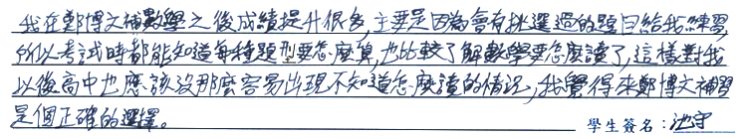 我在鄭博文補數學之後成績提升很多,主要是因為會有挑選過的題目給我練習,
所以考試時都能知道每種題型要怎麼算,也比較了解數學要怎麼讀了,這樣對我
以後高中也應該沒那麼容易出現不知道怎麼讀的情況,我覺得來鄭博文補習
是個正確的選擇。
學生簽名:沈守